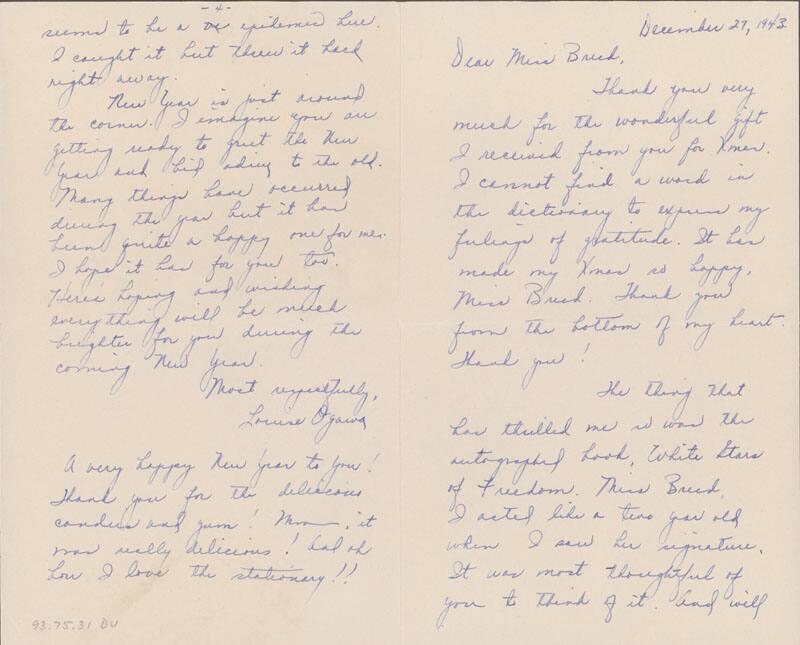 -4-
seems to be a epidemic here.
I caught it but threw it back
right away.
New Year is just around
the corner. I imagine you are
getting ready to greet the New
Year and bid adieu to the old.
Many things have occurred
during the year but it has
been quite a happy one for me.
I hope it has for you too.
Here's hoping and wishing
everything will be much
brighter for you during the
coming New Year.
Most respectfully,
Louise Ogawa
A very happy New Year to you!
Thank you for the delicious
candies and gum! Mmm, it
was really delicious! And oh
how I love the stationary!!
93.75.31 DU
December 27, 1943
Dear Miss Breed,
Thank you very
much for the wonderful gift
I received from you for Xmas.
I cannot find a word in
the dictionary to express my
feelings of gratitude. It has
made my Xmas so happy,
Miss Breed. Thank you
from the bottom of my heart.
Thank you!
The thing that
has thrilled me so was the
autographed book, White Stars
of Freedom. Miss Breed,
I acted like a two year old
when I saw her signature.
It was most thoughtful of
you to think of it. And will